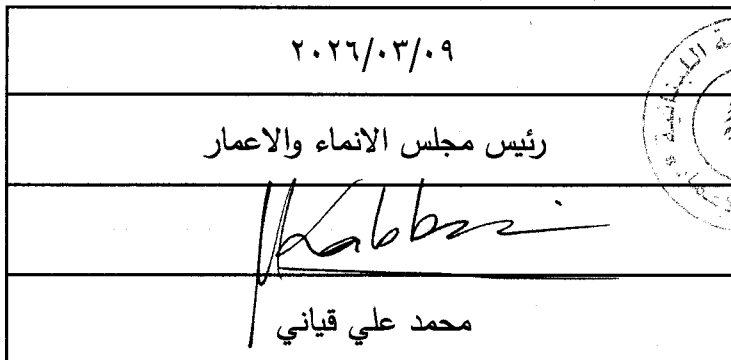 ٢٠٢٦/٠٣/٠٩
رئيس مجلس الانماء والاعمار
محمد علي قياني